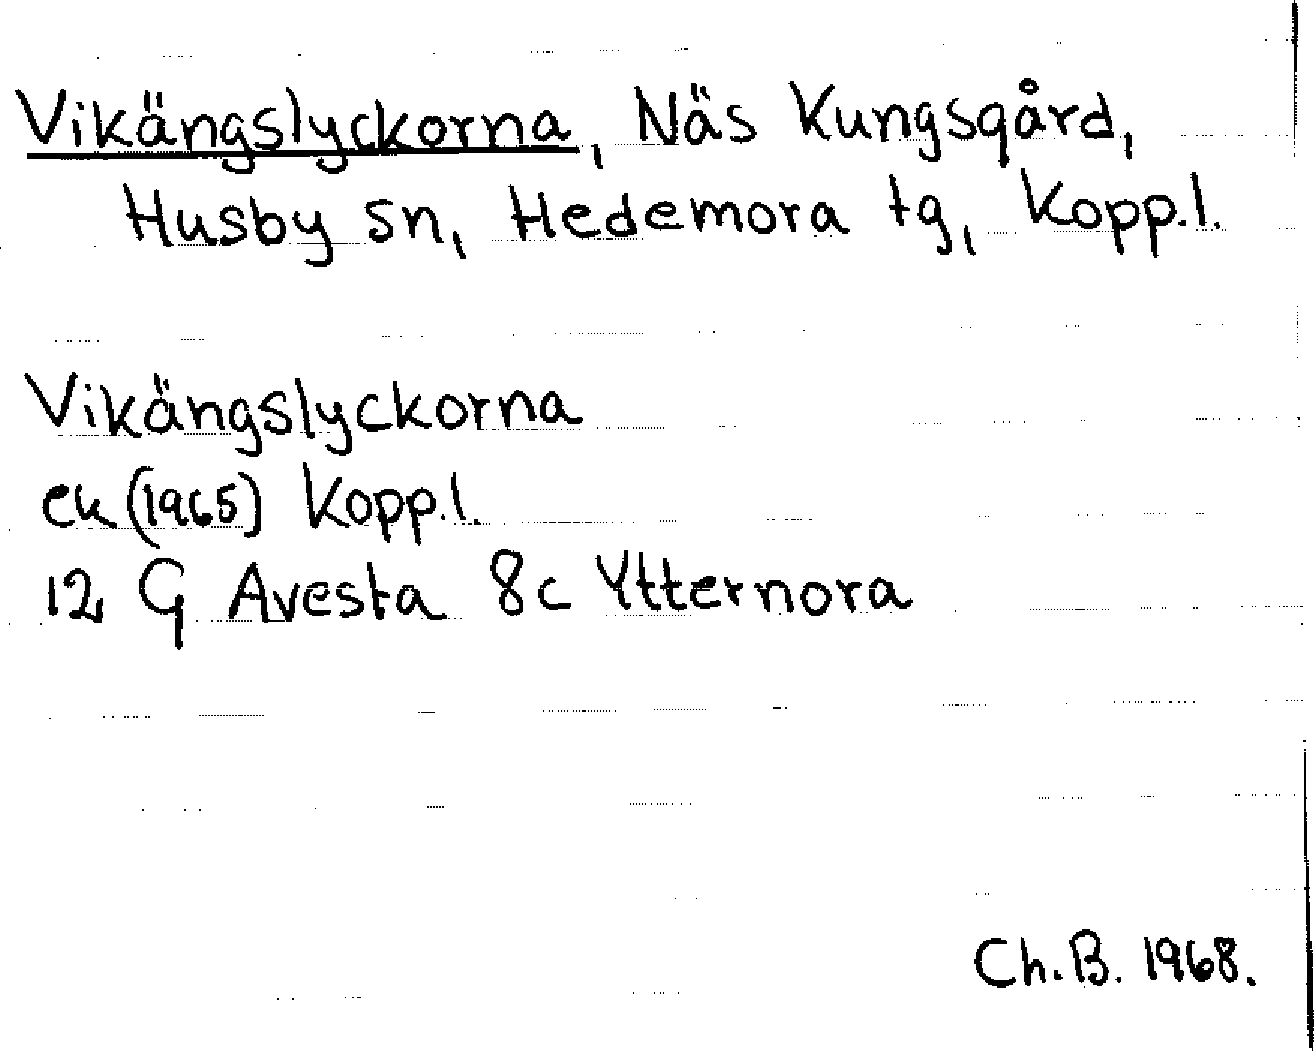 Vikängslyckorna, Näs Kungsgård,
Husby sn, Hedemora tg, Kopp.l.
Vikängslyckorna
ek (1965) Kopp.l.
12 G Avesta 8c Ytternora
Ch.B. 1968.